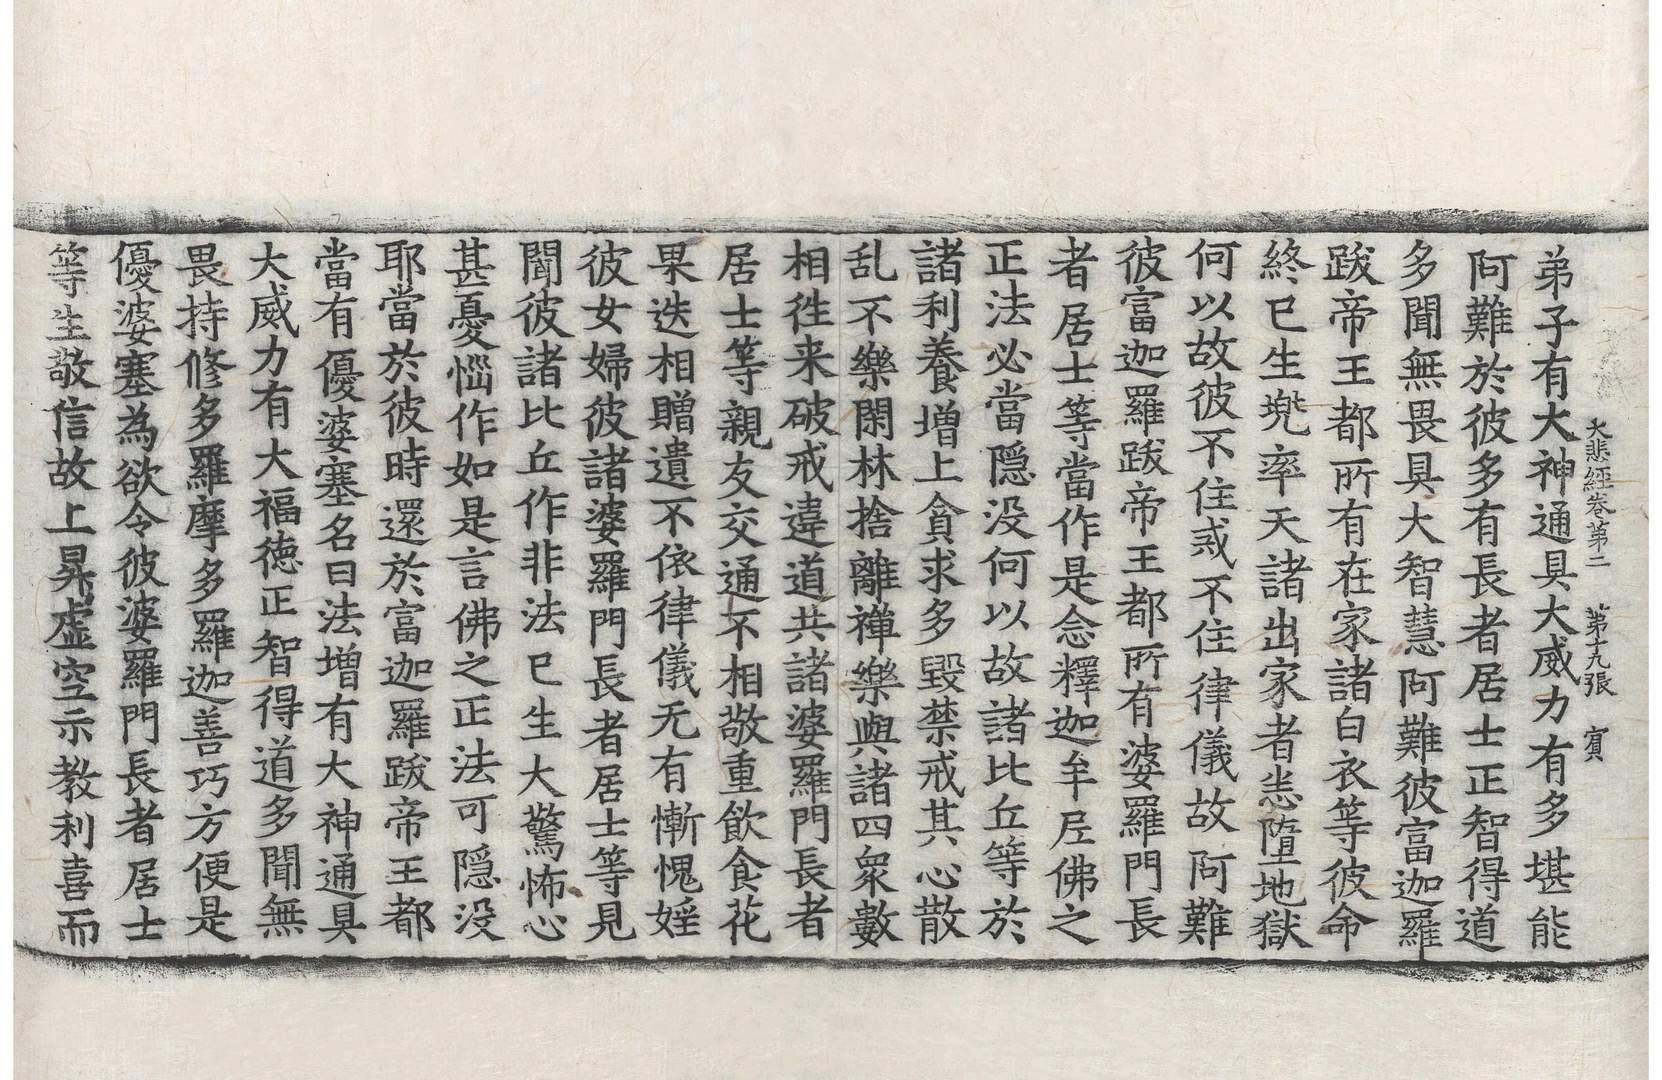 大悲經卷第二　第十九張　賔
弟子有大神通具大威力有多堪能
阿難於彼多有長者居士正智得道
多聞無畏具大智慧阿難彼富迦羅
跋帝王都所有在家諸白衣等彼命
終已生兠率天諸出家者恙墮地獄
何以故彼不住戒不住律儀故阿難
彼富迦羅跋帝王都所有婆羅門長
者居士等當作是念釋迦牟尼佛之
正法必當隱没何以故諸比丘等於
諸利養增上貪求多毀禁戒其心散
乱不樂閑林捨離禪樂與諸四衆數
相徃来破戒違道共諸婆羅門長者
居士等親友交通不相敬重飲食花
果迭相贈遺不依律儀无有慚愧婬
彼女婦彼諸婆羅門長者居士等見
聞彼諸比丘作非法已生大驚怖心
甚憂惱作如是言佛之正法可隱没
耶當於彼時還於富迦羅跋帝王都
當有優婆塞名曰法增有大神通具
大威力有大福德正智得道多聞無
畏持修多羅摩多羅迦善巧方便是
優婆塞為欲令彼婆羅門長者居士
等生敬信故上昇虛空示教利喜而